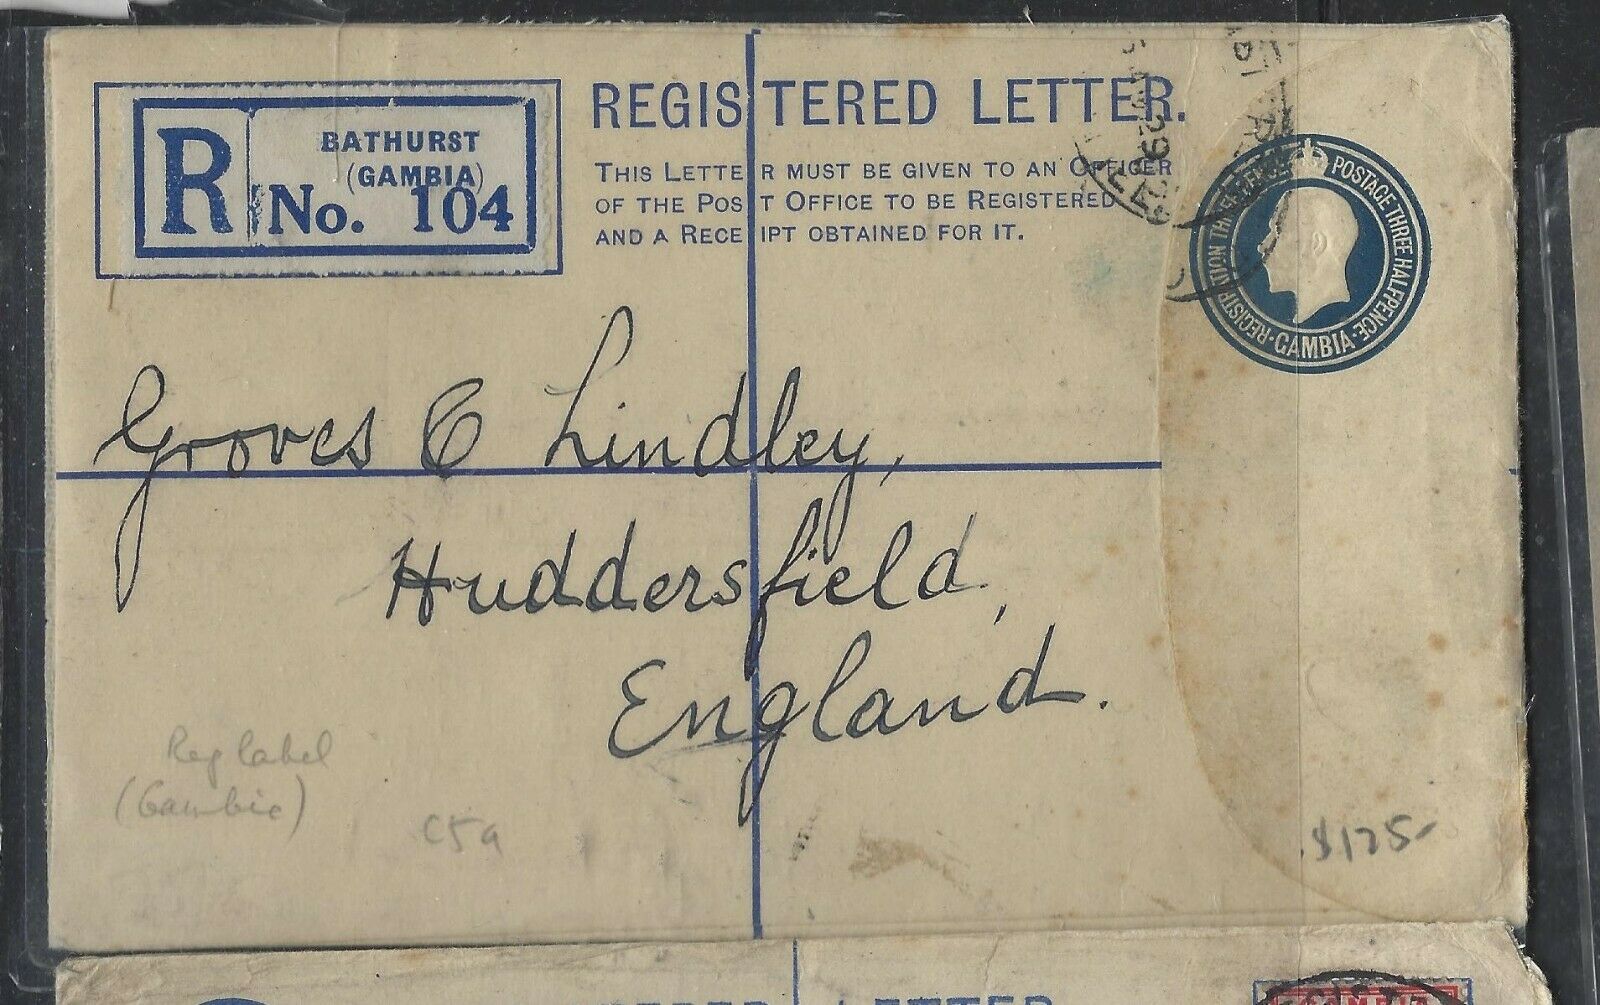 R
BATHURST
(GAMBIA)
No. 104
REGISTERED LETTER.
THIS LETTER MUST BE GIVEN TO AN OFFICER
OF THE POST OFFICE TO BE REGISTERED
AND A RECEIPT OBTAINED FOR IT.
REGISTRATION THREEPENCE POSTAGE THREE HALFPENCE
· GAMBIA ·
Groves & Lindley,
Huddersfield,
England.
Reg label
(Gambia)
C5a
$175-
LETTER